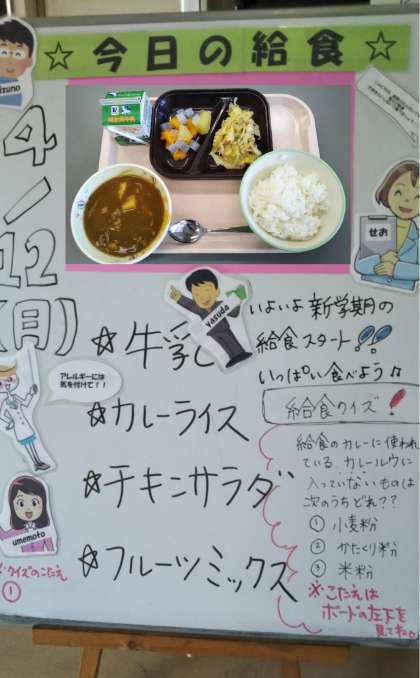 ☆今日の給食☆
4/12(月)
☆牛乳
☆カレーライス
☆チキンサラダ
☆フルーツミックス
いよいよ新学期の
給食スタート!
いっぱい食べよう♫
給食クイズ!
給食のカレーに使われ
ている カレールウに
入っていないものは
次のうちどれ??
① 小麦粉
② かたくり粉
③ 米粉
※こたえは
ボードの左下を
見てね
yasuda
せお
アレルギーには
気を付けて!!
umemoto
クイズのこたえ
①